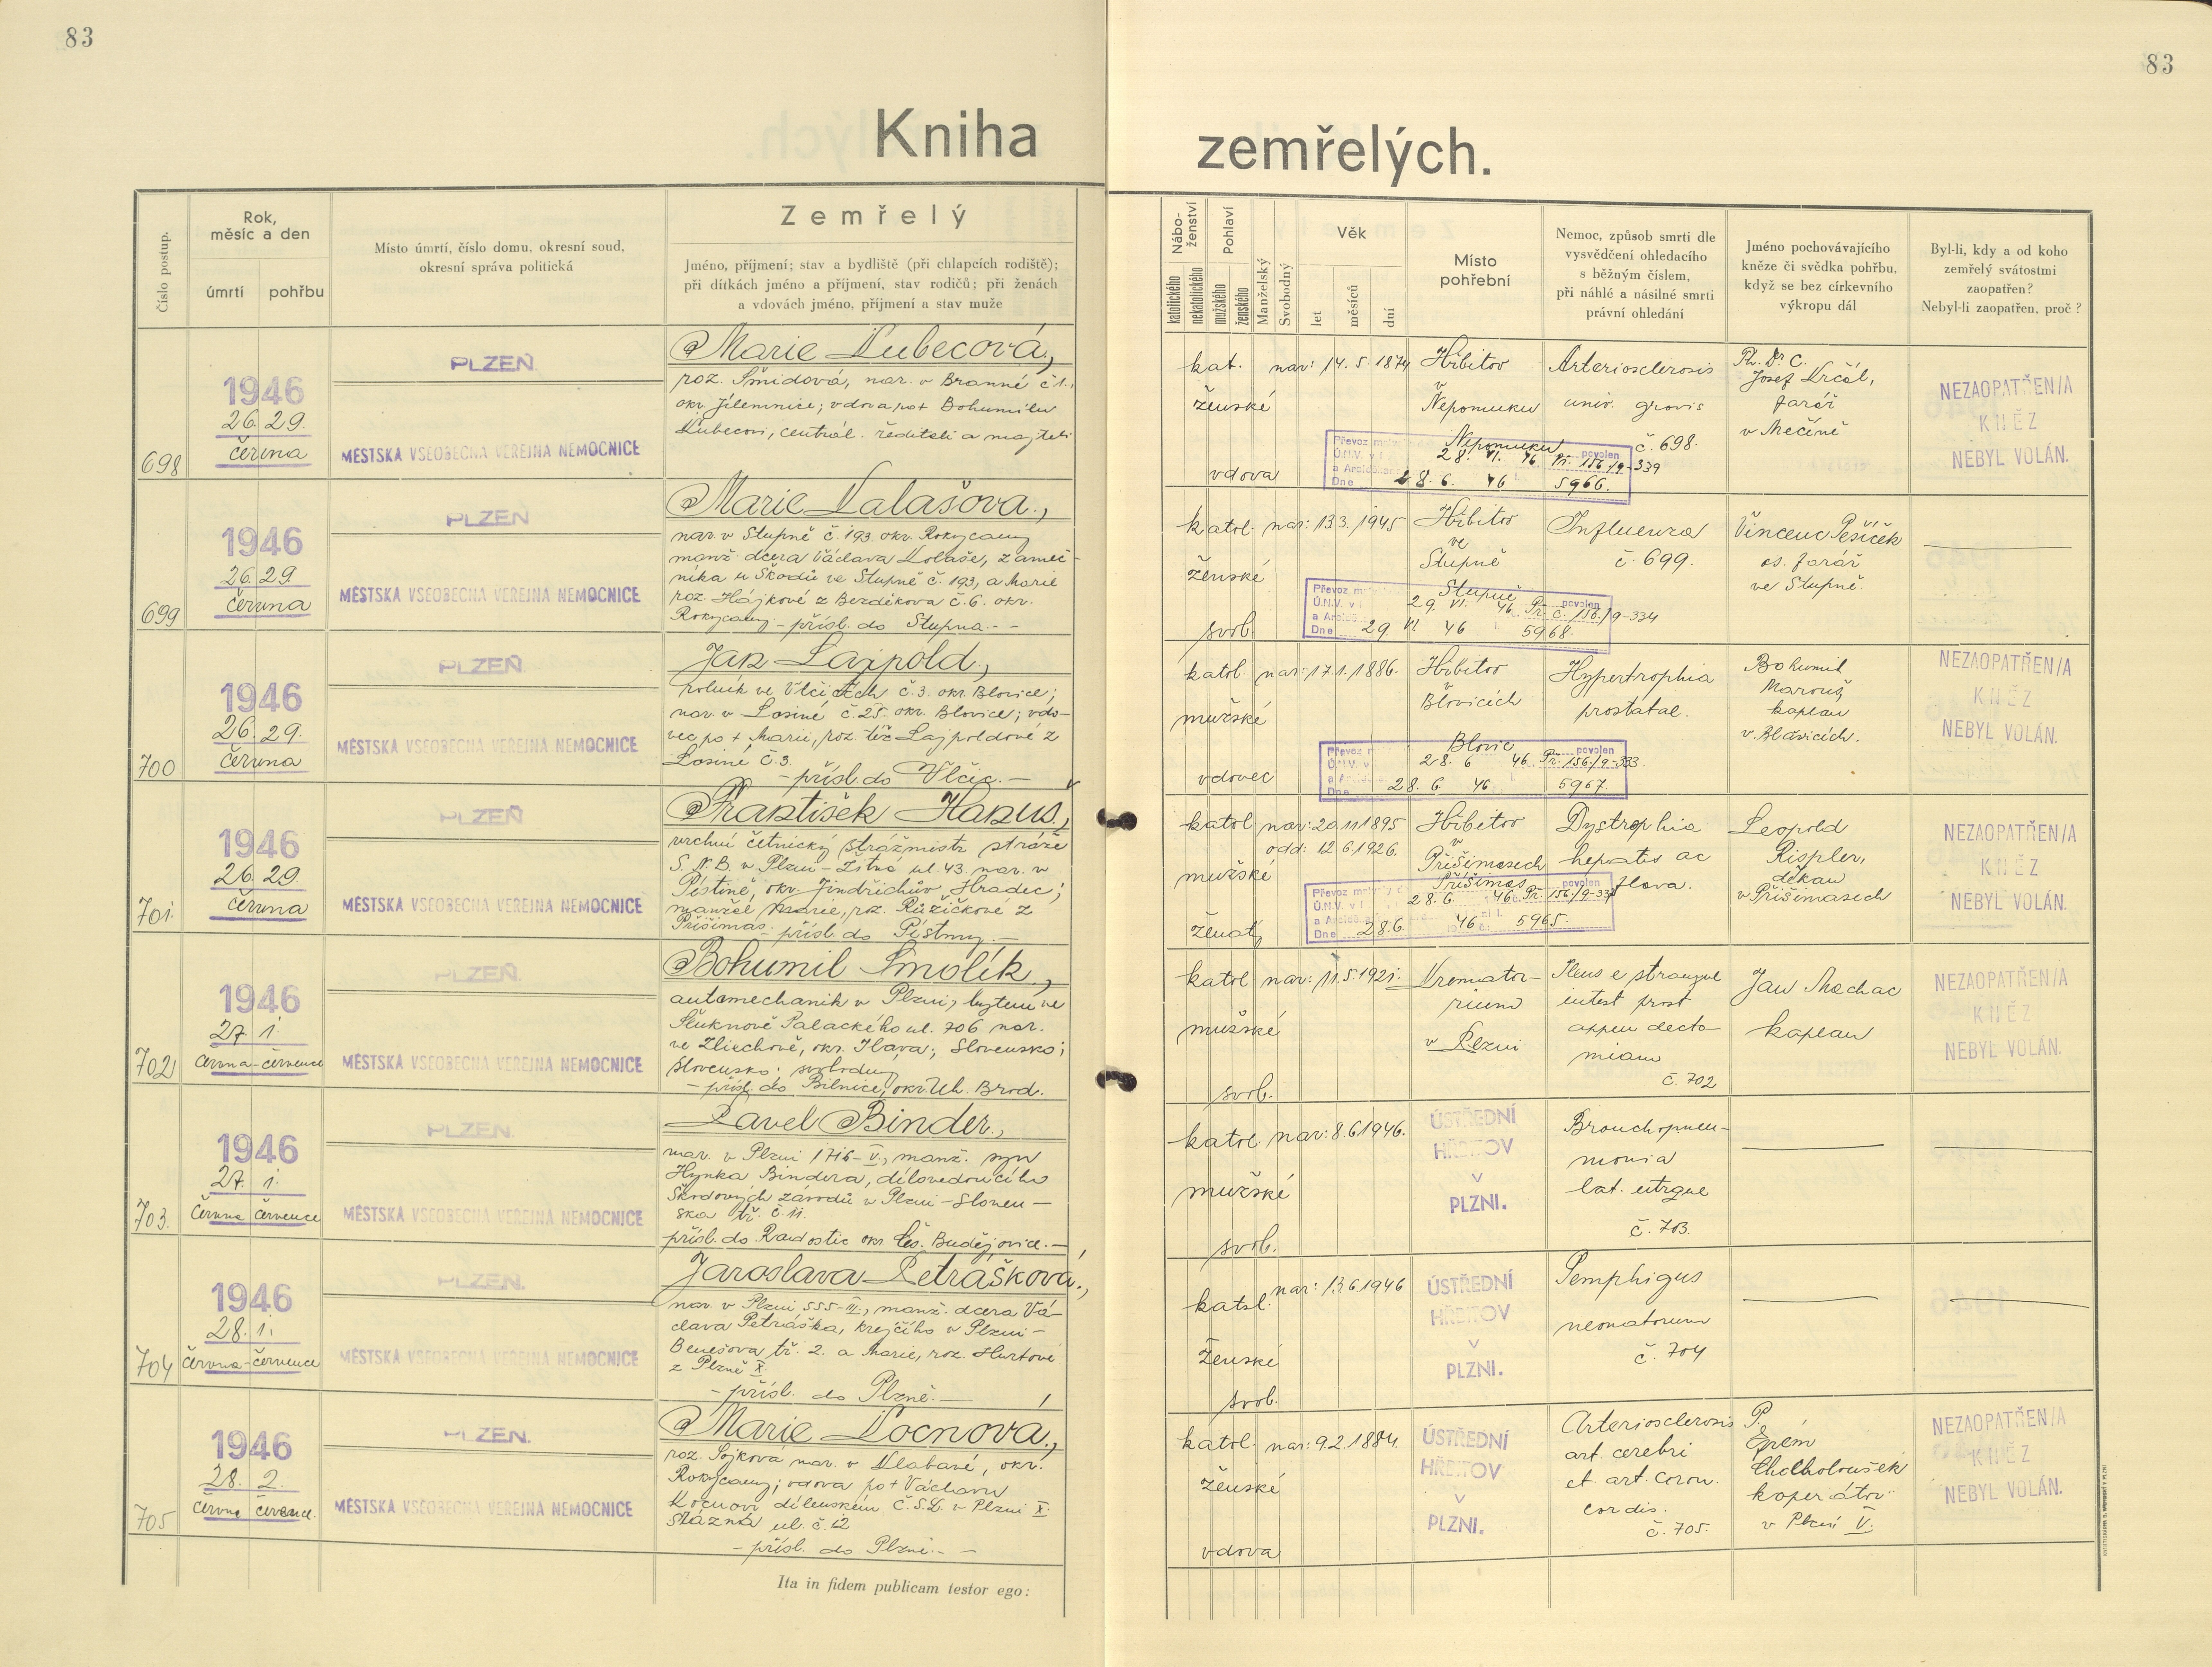 83
83
Kniha
zemřelých.
Číslo postup.
Rok,
měsíc a den
úmrtí
pohřbu
Místo úmrtí, číslo domu, okresní soud,
okresní správa politická
Zemřelý
Jméno, příjmení; stav a bydliště (při chlapcích rodiště);
při dítkách jméno a příjmení, stav rodičů; při ženách
a vdovách jméno, příjmení a stav muže
Nábo-
ženství
katolického
nekatolického
Pohlaví
mužského
ženského
Manželský
Svobodný
Věk
let
měsíců
dní
Místo
pohřební
Nemoc, způsob smrti dle
vysvědčení ohledacího
s běžným číslem,
při náhlé a násilné smrti
právní ohledání
Jméno pochovávajícího
kněze či svědka pohřbu,
když se bez církevního
výkropu dál
Byl-li, kdy a od koho
zemřelý svátostmi
zaopatřen?
Nebyl-li zaopatřen, proč?
698
1946
26. 29.
června
PLZEŇ
MĚSTSKÁ VŠEOBECNÁ VEŘEJNÁ NEMOCNICE
Marie Kubecová,
roz. Šmídová, nar. v Branné č 1.,
okr. Jilemnice; vdova po + Bohumilu
Kubecovi, centrál. řediteli a majiteli
kat.
ženské
vdova
nar: 14. 5. 1874
Hřbitov
v
Nepomuku
Arteriosclerosis
univ. gravis
č. 698.
Ph. Dr. C.
Josef Krčál,
farář
v Mečíně
NEZAOPATŘEN/A
KNĚZ
NEBYL VOLÁN.
Převoz povolen
Nepomuku
Ú.N.V. v 28. VI. 46 Př. 156/9-339
Dne 28. 6. 46 5966.
699
1946
26. 29.
června
PLZEŇ
MĚSTSKÁ VŠEOBECNÁ VEŘEJNÁ NEMOCNICE
Marie Kalašová,
nar. v Stupně č. 193 okr. Rokycany
manž. dcera Václava Kalaše, zámeč-
níka u Škodů ve Stupně č. 193, a Marie
roz. Hájkové z Bezděkova č. 6. okr.
Rokycany – přísl. do Stupna. –
katol.
ženské
svob.
nar: 13 3. 1945
Hřbitov
ve
Stupně
Influenza
č. 699.
Vincenc Pešíček
os. farář
ve Stupně.
Převoz povolen
Stupně
Ú.N.V. v 29. VI. 46. Př. č. 156/9-334
Dne 29. VI 46 5968.
700
1946
26. 29.
června
PLZEŇ
MĚSTSKÁ VŠEOBECNÁ VEŘEJNÁ NEMOCNICE
Jan Lajpold,
rolník ve Vlčicích č. 3. okr. Blovice;
nar. v Losiné č. 25. okr. Blovice; vdo-
vec po + Marii, roz. též Lajpoldové z
Losiné č. 3.
– přísl. do Vlčic. –
katol.
mužské
vdovec
nar: 17. 1. 1886.
Hřbitov
v
Blovicích
Hypertrophia
prostatae.
Bohumil
Marouš,
kaplan
v Blovicích.
NEZAOPATŘEN/A
KNĚZ
NEBYL VOLÁN.
Převoz povolen
Blovic
28. 6 46. Př. 156/9-333.
Dne 28. 6. 46 5967.
701.
1946
26. 29.
června
PLZEŇ
MĚSTSKÁ VŠEOBECNÁ VEŘEJNÁ NEMOCNICE
František Hanuš,
vrchní četnický strážmistr stráže
S.N.B. v Plzni – Žitná ul. 43. nar. v
Pístině, okr. Jindřichův Hradec;
manžel Marie, roz. Růžičkové z
Přišimas – přísl. do Pístiny. –
katol
mužské
ženatý
nar: 20. 11 1895
odd: 12. 6. 1926.
Hřbitov
v
Přišimasech
Dystrophia
hepatis ac
flava.
Leopold
Rispler,
děkan
v Přišimasech
NEZAOPATŘEN/A
KNĚZ
NEBYL VOLÁN.
Převoz povolen
Přišimas
28. 6. 46.
Dne 28. 6. 46. 5965.
702
1946
27. 1.
června–července
PLZEŇ.
MĚSTSKÁ VŠEOBECNÁ VEŘEJNÁ NEMOCNICE
Bohumil Smolík,
automechanik v Plzni, bytem ve
Šluknově Palackého ul. 706 nar.
ve Zliechově, okr. Ilava; Slovensko;
Slovensko; svobodný
– přísl. do Bilnice, okr. Uh. Brod.
katol
mužské
svob.
nar: 11. 5. 1921.
Kremator-
rium
v Plzni
Ileus e strangul
intest prost
appen decto-
miam
č. 702
Jan Machac
kaplan
NEZAOPATŘEN/A
KNĚZ
NEBYL VOLÁN.
703.
1946
27. 1.
června července
PLZEŇ.
MĚSTSKÁ VŠEOBECNÁ VEŘEJNÁ NEMOCNICE
Pavel Binder,
nar. v Plzni 1716–V., manž. syn
Hynka Bindera, dílovedoucího
Škodových závodů v Plzni – Sloven –
ska tř. č. 11.
přísl. do Radostic okr. Čes. Budějovice. –
katol
mužské
svob.
nar: 8. 6. 1946.
ÚSTŘEDNÍ
HŘBITOV
V
PLZNI.
Bronchopneu-
monia
lat. utrque
č. 703.
704
1946
28. 1.
června–července
PLZEŇ.
MĚSTSKÁ VŠEOBECNÁ VEŘEJNÁ NEMOCNICE
Jaroslava Petrášková,
nar. v Plzni 555–III., manž. dcera Vá-
clava Petráška, krejčího v Plzni –
Benešova tř. 2. a Marie, roz. Hurtové
z Plzně X.
– přísl. do Plzně. –
katol.
ženské
svob.
nar: 13. 6 1946
ÚSTŘEDNÍ
HŘBITOV
V
PLZNI.
Pemphigus
neonatorum
č. 704
705
1946
28. 2.
června července.
PLZEŇ.
MĚSTSKÁ VŠEOBECNÁ VEŘEJNÁ NEMOCNICE
Marie Kocnová,
roz. Sojková nar. v Klabavě, okr.
Rokycany; vdova po + Václavu
Kocnovi dílenském Č.S.D. v Plzni X.
ul. č. 12
– přísl. do Plzni. –
katol.
ženské
vdova
nar: 9 2. 1884.
ÚSTŘEDNÍ
HŘBITOV
V
PLZNI.
Arteriosclerosis
art. cerebri
et art. coron.
cordis.
č. 705.
P.
Efrém
Cholholoušek
koperátor
v Plzni V.
NEZAOPATŘEN/A
KNĚZ
NEBYL VOLÁN.
Ita in fidem publicam testor ego: